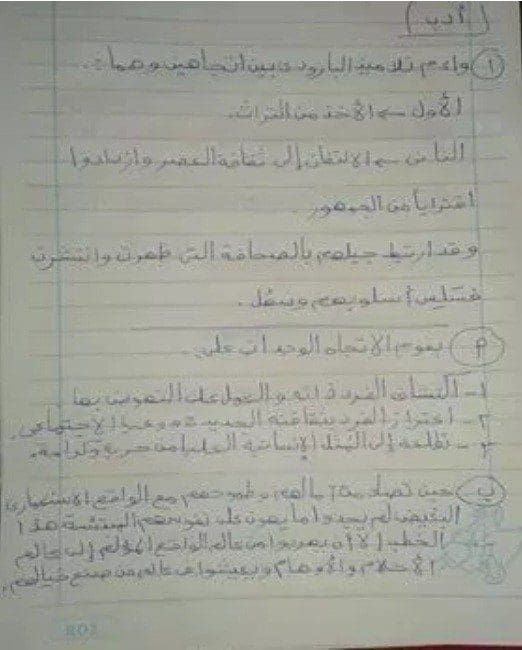 [أدب]
١ واءم تلاميذ البارودى بين اتجاهين وهما:.
الأول ← الأخذ من التراث.
الثانى ← الالتفات إلى ثقافة العصر وازدادوا
اقتراباً من الجمهور.
وقد ارتبط جيلهم بالصحافة التى ظهرت وانتشرت
فسلس أسلوبهم وسهل.
م يقوم الاتجاه الوجدانى على:.
١- الفرد ذاته والعمل على النهوض بها
٢- اعتزاز الفرد بثقافته الجديدة ووعيه الاجتماعى.
٣- تطلعه إلى المثل الإنسانية العليا من حرية وكرامة.
ب حين تصادمت آمالهم وطموحهم مع الواقع الاستعمارى
البغيض لم يجدوا ما يهون على نفوسهم هذا
الخطب إلا أن يهربوا من عالم الواقع المؤلم إلى عالم
الأحلام والأوهام ويعيشوا فى عالم من صنع خيالهم.